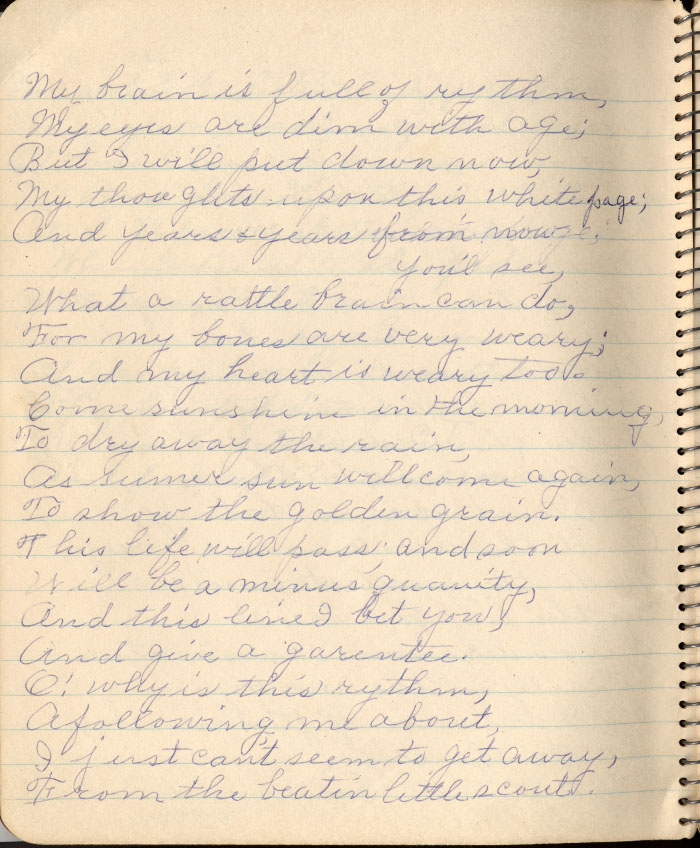 My brain is full of rythm,
My eyes are dim with age;
But I will put down now,
My thoughts upon this white page;
And years & years from now
you'l see,
What a rattle brain can do,
For my bones are very weary;
And my heart is weary too.
Come sunshine in the morning,
To dry away the rain,
As sumer sun will come again,
To show the golden grain.
This life will pass, and soon
Will be a minus quanity,
And this line I bet you,
And give a garentee.
O! why is this rythm,
A following me about,
I just can't seem to get away,
From the beatin little scout.